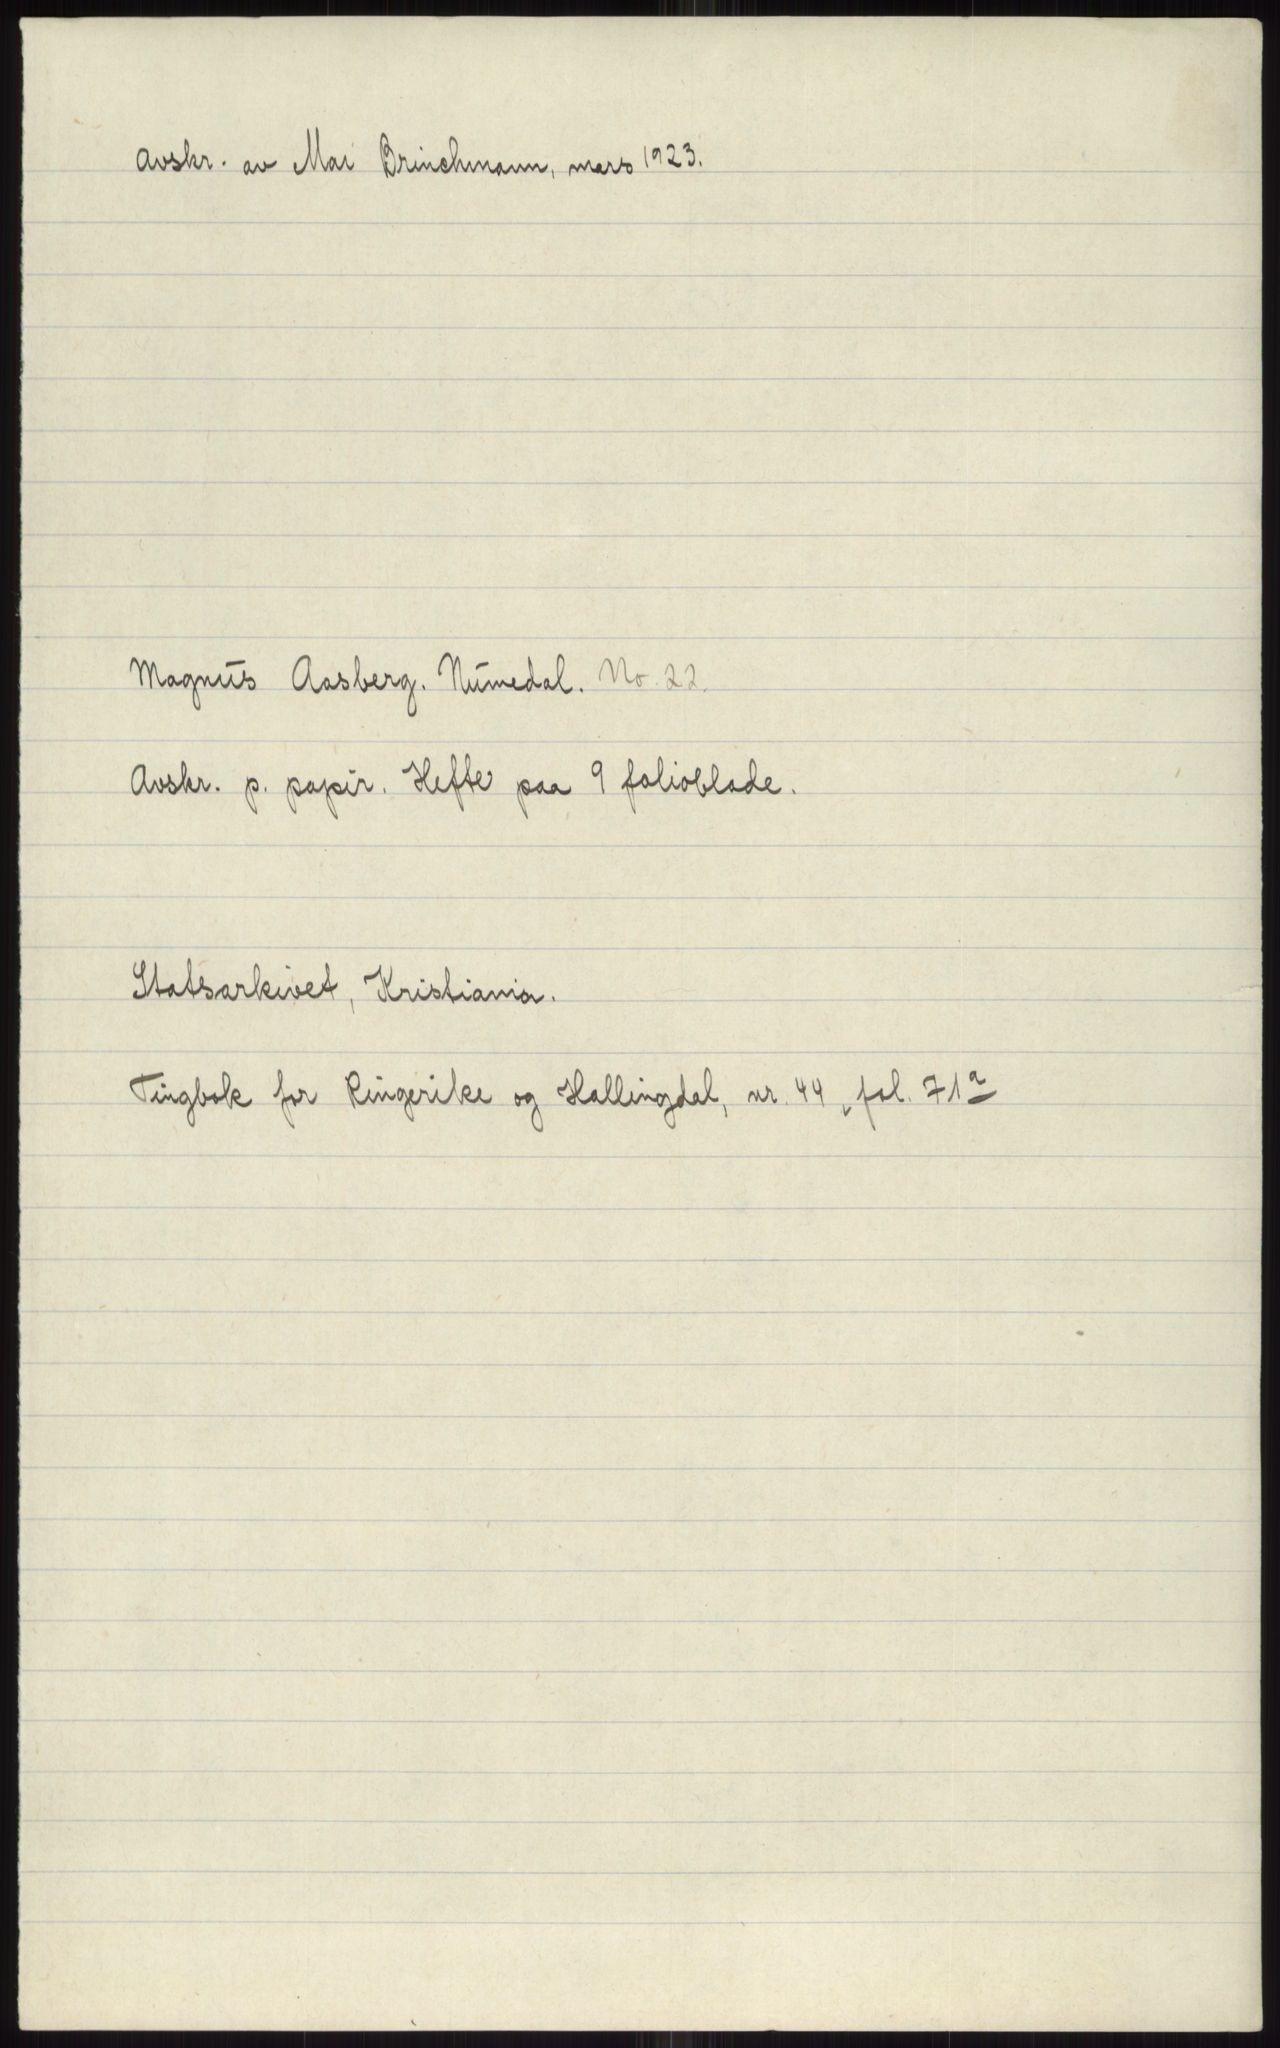 Avskr. av Mai Brinchmann, mars 1923.
Magnus Aasberg. Numedal. No. 22.
Avskr. p. papir. Hefte paa 9 folioblade.
Statsarkivet, Kristiania.
Tingbok for Ringerike og Hallingdal, nr. 44, fol. 71a